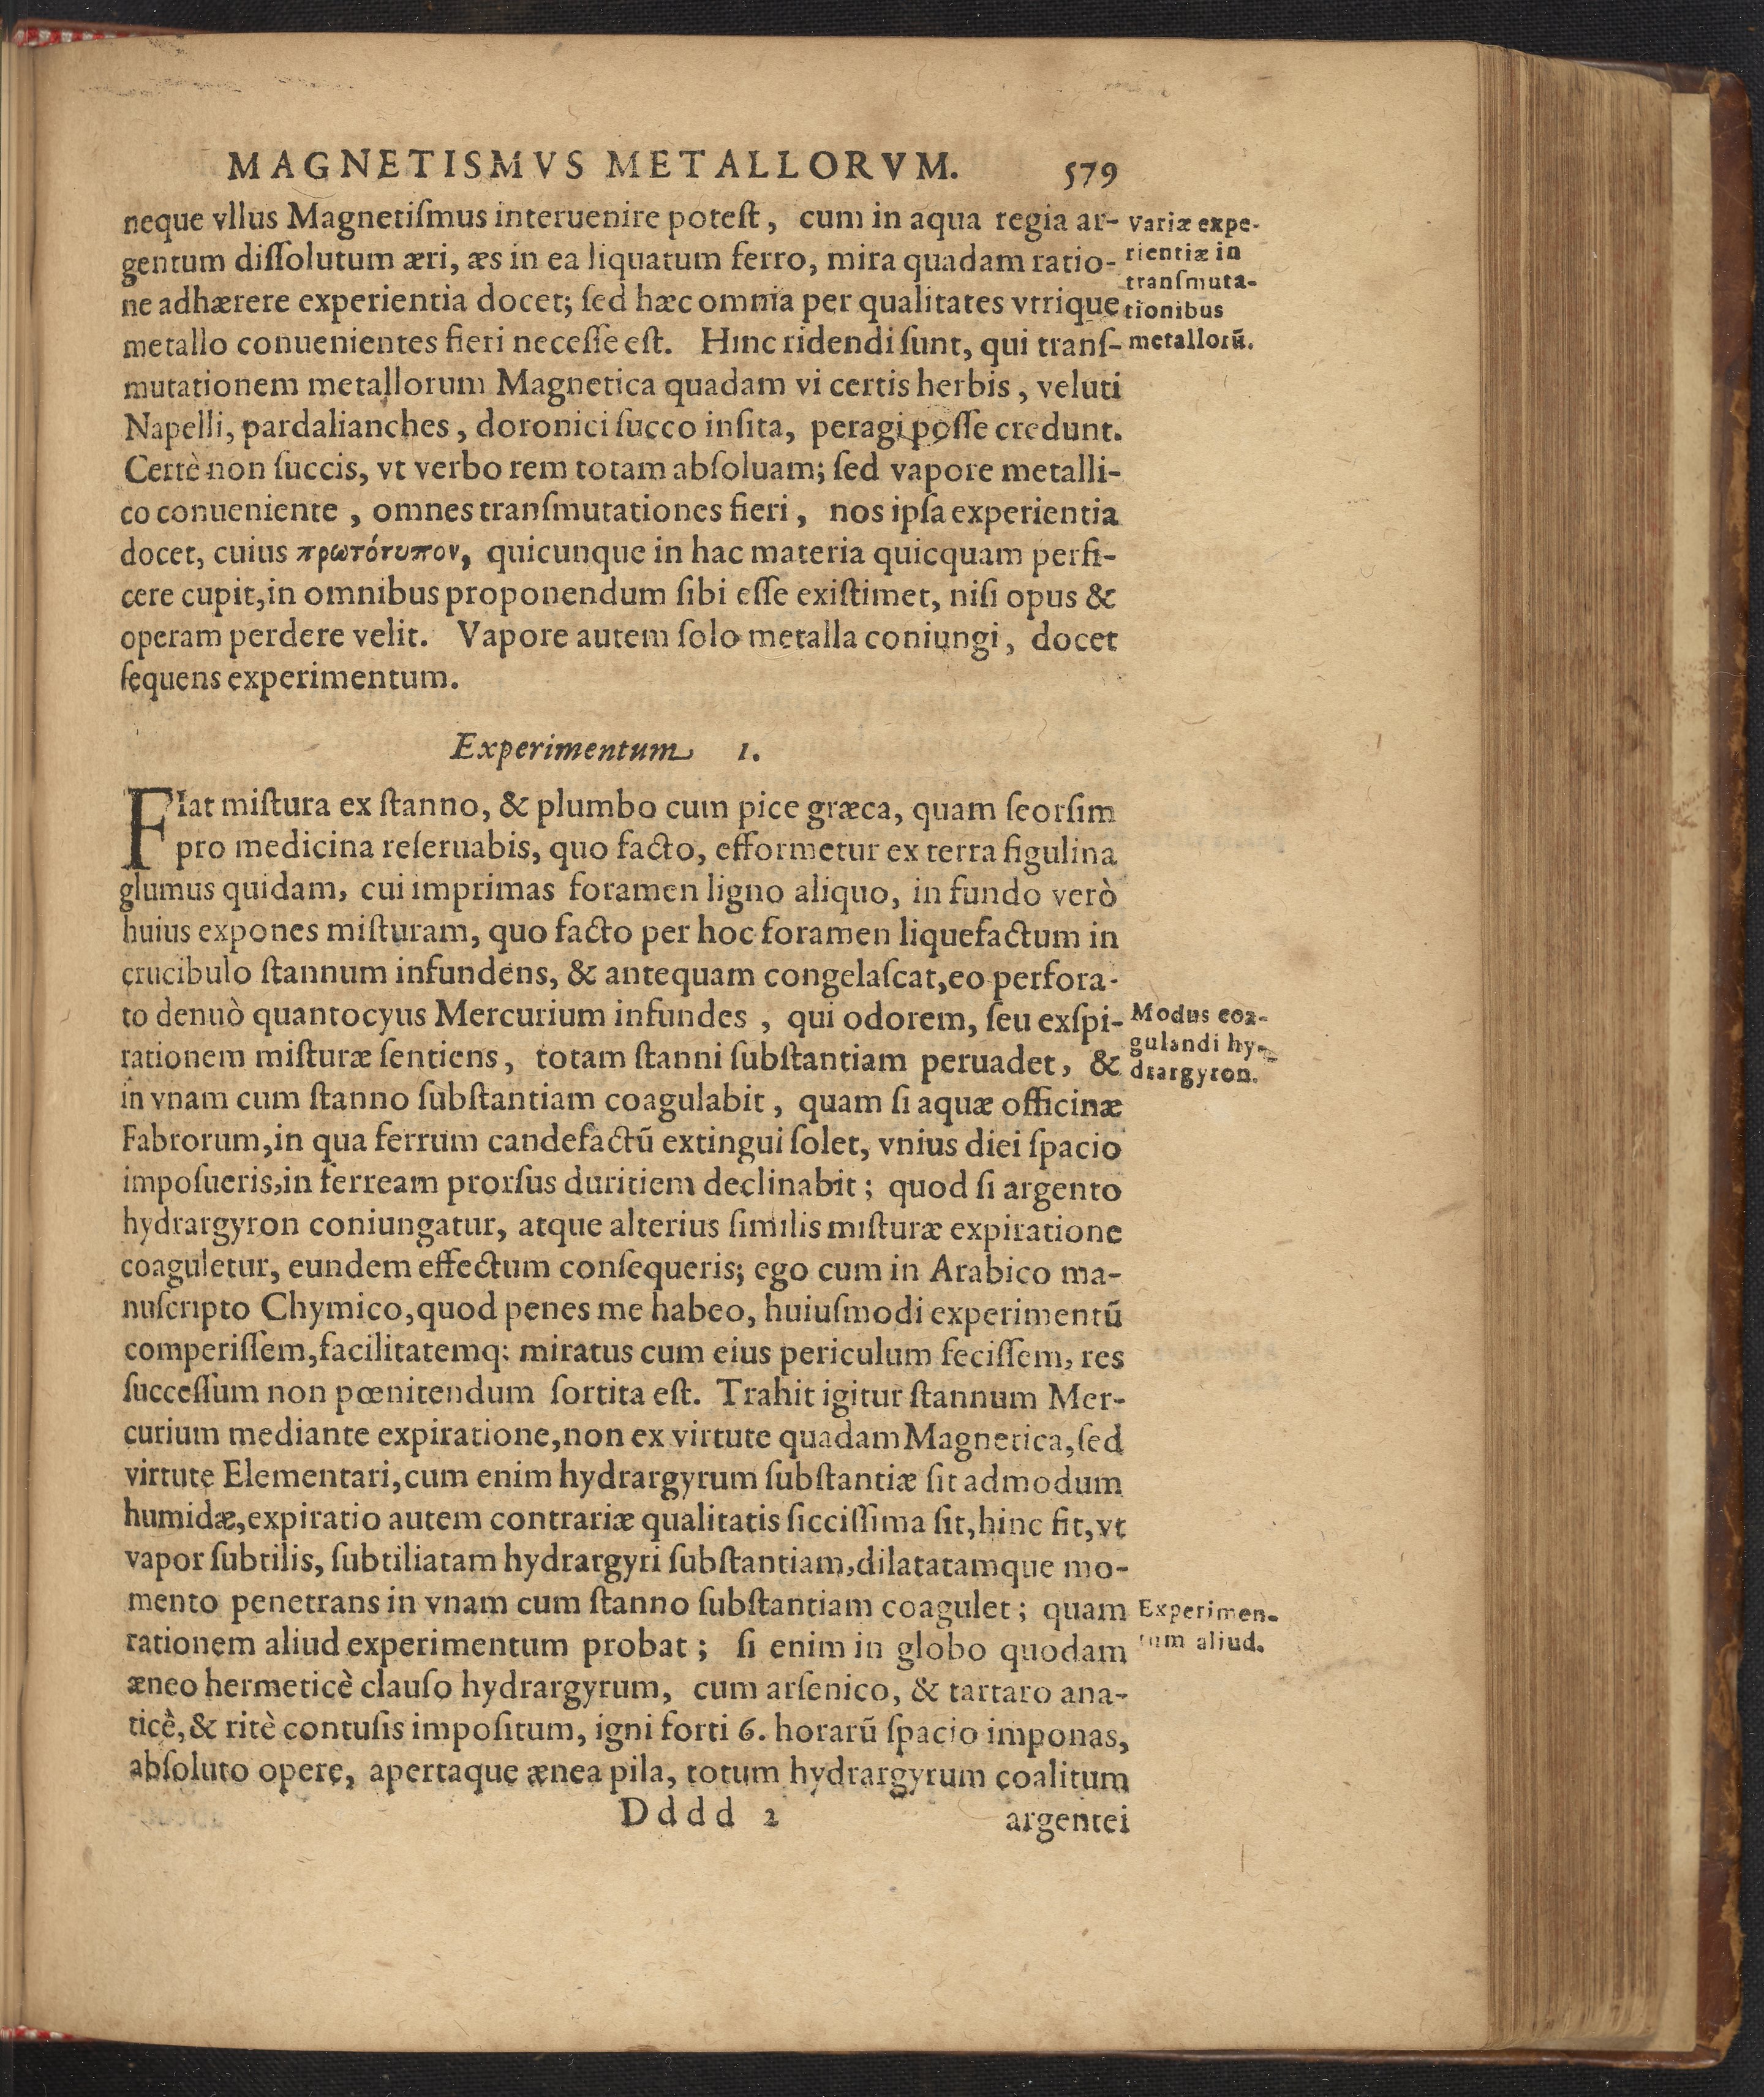 MAGNETISMVS METALLORVM. 579
neque vllus Magnetiſmus interuenire poteſt, cum in aqua regia ar-
gentum diſſolutum æri, æs in ea liquatum ferro, mira quadam ratio-
ne adhærere experientia docet; ſed hæc omnia per qualitates vtrique
metallo conuenientes fieri neceſſe eſt. Hinc ridendi ſunt, qui tranſ-
mutationem metallorum Magnetica quadam vi certis herbis, veluti
Napelli, pardalianches, doronici ſucco inſita, peragi poſſe credunt.
Certè non ſuccis, vt verbo rem totam abſoluam; ſed vapore metalli-
co conueniente, omnes tranſmutationes fieri, nos ipſa experientia
docet, cuius πρωτότυπον, quicunque in hac materia quicquam perfi-
cere cupit, in omnibus proponendum ſibi eſſe exiſtimet, niſi opus &
operam perdere velit. Vapore autem ſolo metalla coniungi, docet
ſequens experimentum.
Variæ expe-
rientiæ in
tranſmuta-
tionibus
metallorū.
Experimentum 1.
FIat miſtura ex ſtanno, & plumbo cum pice græca, quam ſeorſim
pro medicina reſeruabis, quo facto, efformetur ex terra figulina
glumus quidam, cui imprimas foramen ligno aliquo, in fundo verò
huius expones miſturam, quo facto per hoc foramen liquefactum in
crucibulo ſtannum infundens, & antequam congelaſcat, eo perfora-
to denuò quantocyus Mercurium infundes, qui odorem, ſeu exſpi-
rationem miſturæ ſentiens, totam ſtanni ſubſtantiam peruadet, &
in vnam cum ſtanno ſubſtantiam coagulabit, quam ſi aquæ officinæ
Fabrorum, in qua ferrum candefactū extingui ſolet, vnius diei ſpacio
impoſueris, in ferream prorſus duritiem declinabit; quod ſi argento
hydrargyron coniungatur, atque alterius ſimilis miſturæ expiratione
coaguletur, eundem effectum conſequeris; ego cum in Arabico ma-
nuſcripto Chymico, quod penes me habeo, huiuſmodi experimentū
comperiſſem, facilitatemq; miratus cum eius periculum feciſſem, res
ſucceſſum non pœnitendum ſortita eſt. Trahit igitur ſtannum Mer-
curium mediante expiratione, non ex virtute quadam Magnetica, ſed
virtute Elementari, cum enim hydrargyrum ſubſtantiæ ſit admodum
humidæ, expiratio autem contrariæ qualitatis ſicciſſima ſit, hinc fit, vt
vapor ſubtilis, ſubtiliatam hydrargyri ſubſtantiam, dilatatamque mo-
mento penetrans in vnam cum ſtanno ſubſtantiam coagulet; quam
rationem aliud experimentum probat; ſi enim in globo quodam
æneo hermeticè clauſo hydrargyrum, cum arſenico, & tartaro ana-
ticè, & ritè contuſis impoſitum, igni forti 6. horarū ſpacio imponas,
abſoluto opere, apertaque ænea pila, totum hydrargyrum coalitum
Modus coa-
gulandi hy-
drargyron.
Experimen-
tum aliud.
Dddd 2 argentei